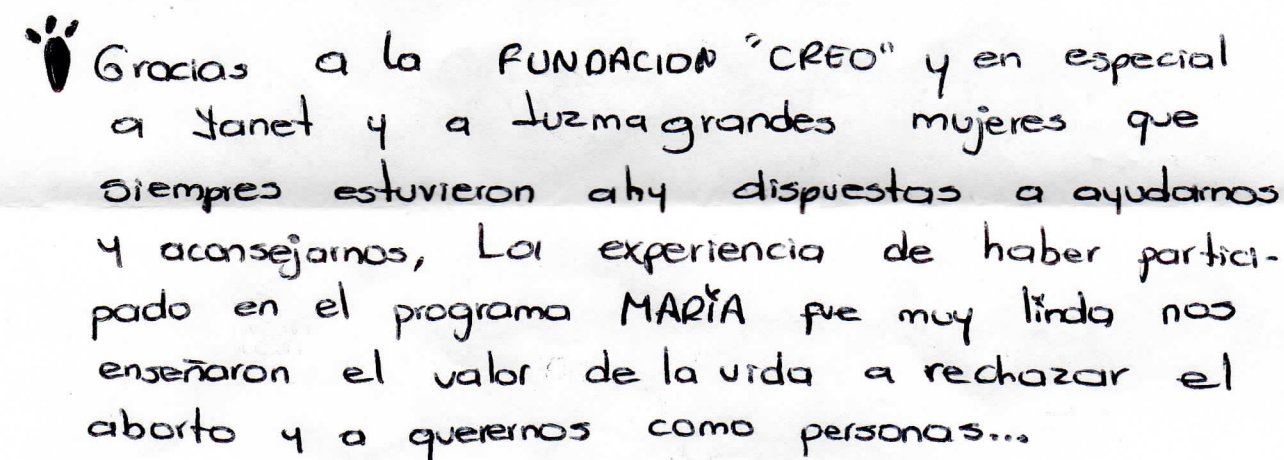 Gracias a la FUNDACION "CREO" y en especial
a Yanet y a Luzma grandes mujeres que
siempres estuvieron ahy dispuestas a ayudarnos
y aconsejarnos, La experiencia de haber partici-
pado en el programa MARÍA fue muy linda nos
enseñaron el valor de la vida a rechazar el
aborto y a querernos como personas...